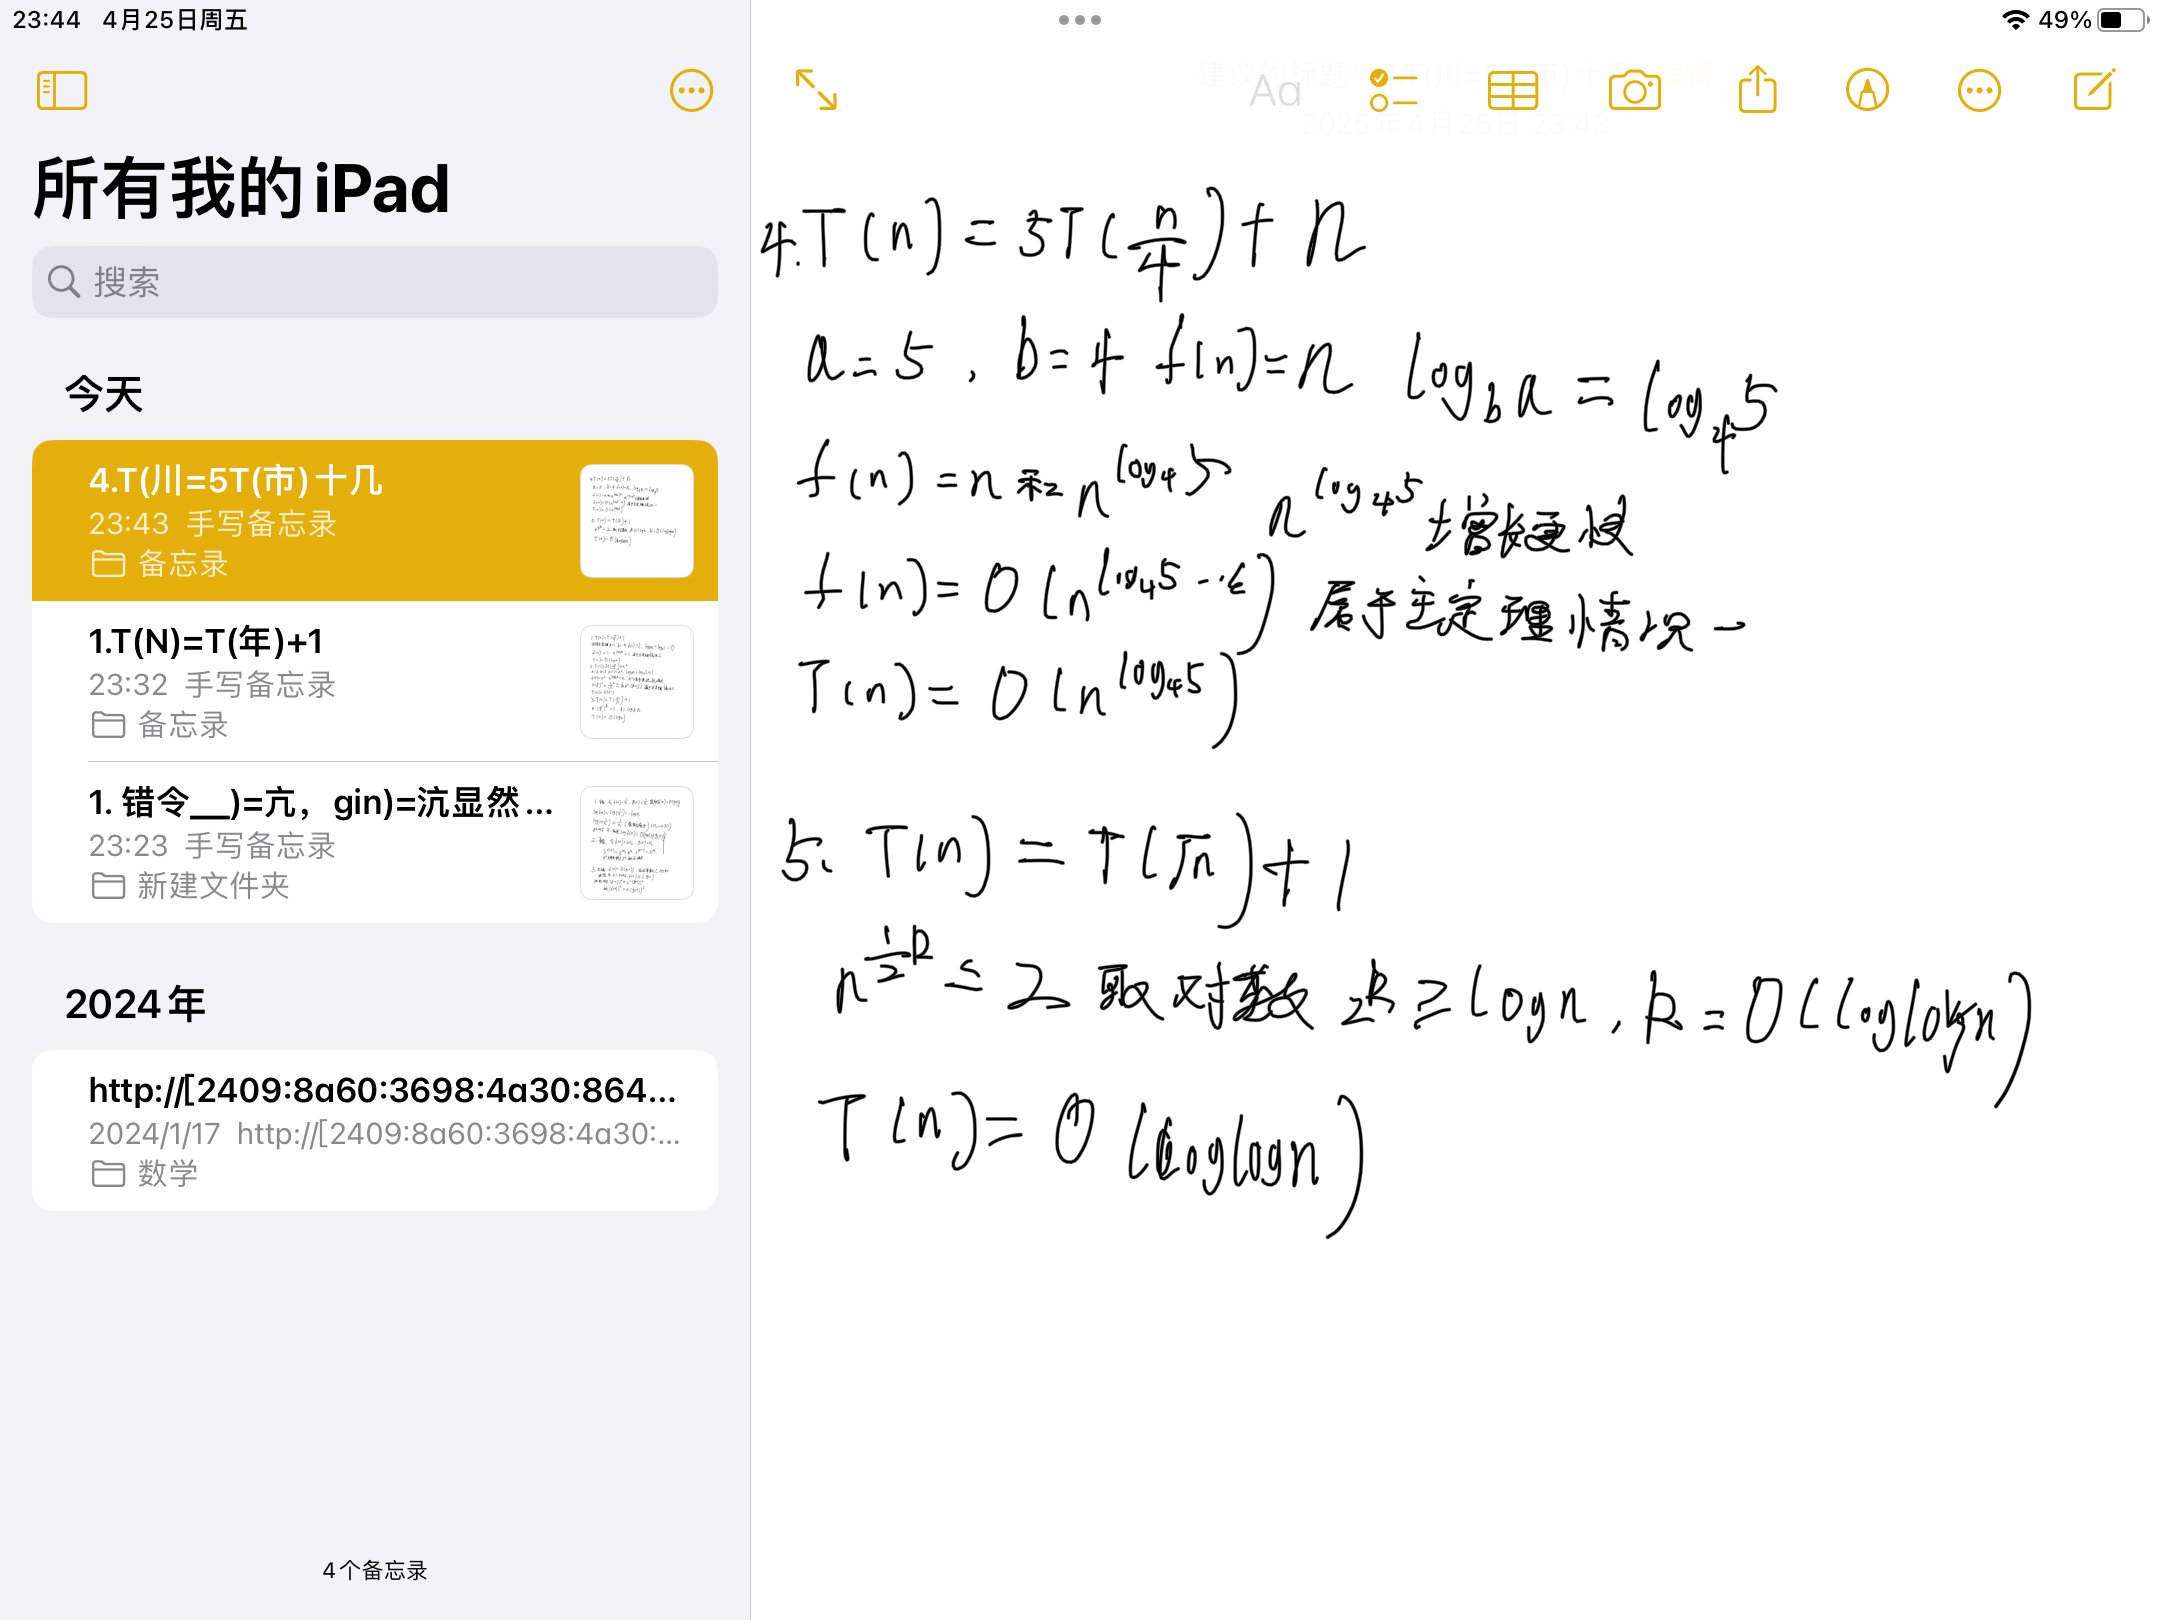 23:44 4月25日周五
49%
所有我的iPad
搜索
今天
4.T(川=5T(市)十几
23:43 手写备忘录
备忘录
1.T(N)=T(年)+1
23:32 手写备忘录
备忘录
1. 错令__)=亢，gin)=沆显然...
23:23 手写备忘录
新建文件夹
2024年
http://[2409:8a60:3698:4a30:864...
2024/1/17 http://[2409:8a60:3698:4a30:...
数学
4个备忘录
Aa
2025年4月25日 23:43
4. T(n) = 5T(n/4) + n
a=5, b=4 f(n)=n log_b a = log_4 5
f(n) = n 和 n^{log_4 5} n^{log_4 5} 增长更快
f(n) = O(n^{log_4 5 - ε}) 属于主定理情况一
T(n) = O(n^{log_4 5})
5. T(n) = T(√n) + 1
n^{1/2^k} ≤ 2 取对数 2^k ≥ log n, k = O(log log n)
T(n) = O(log log n)